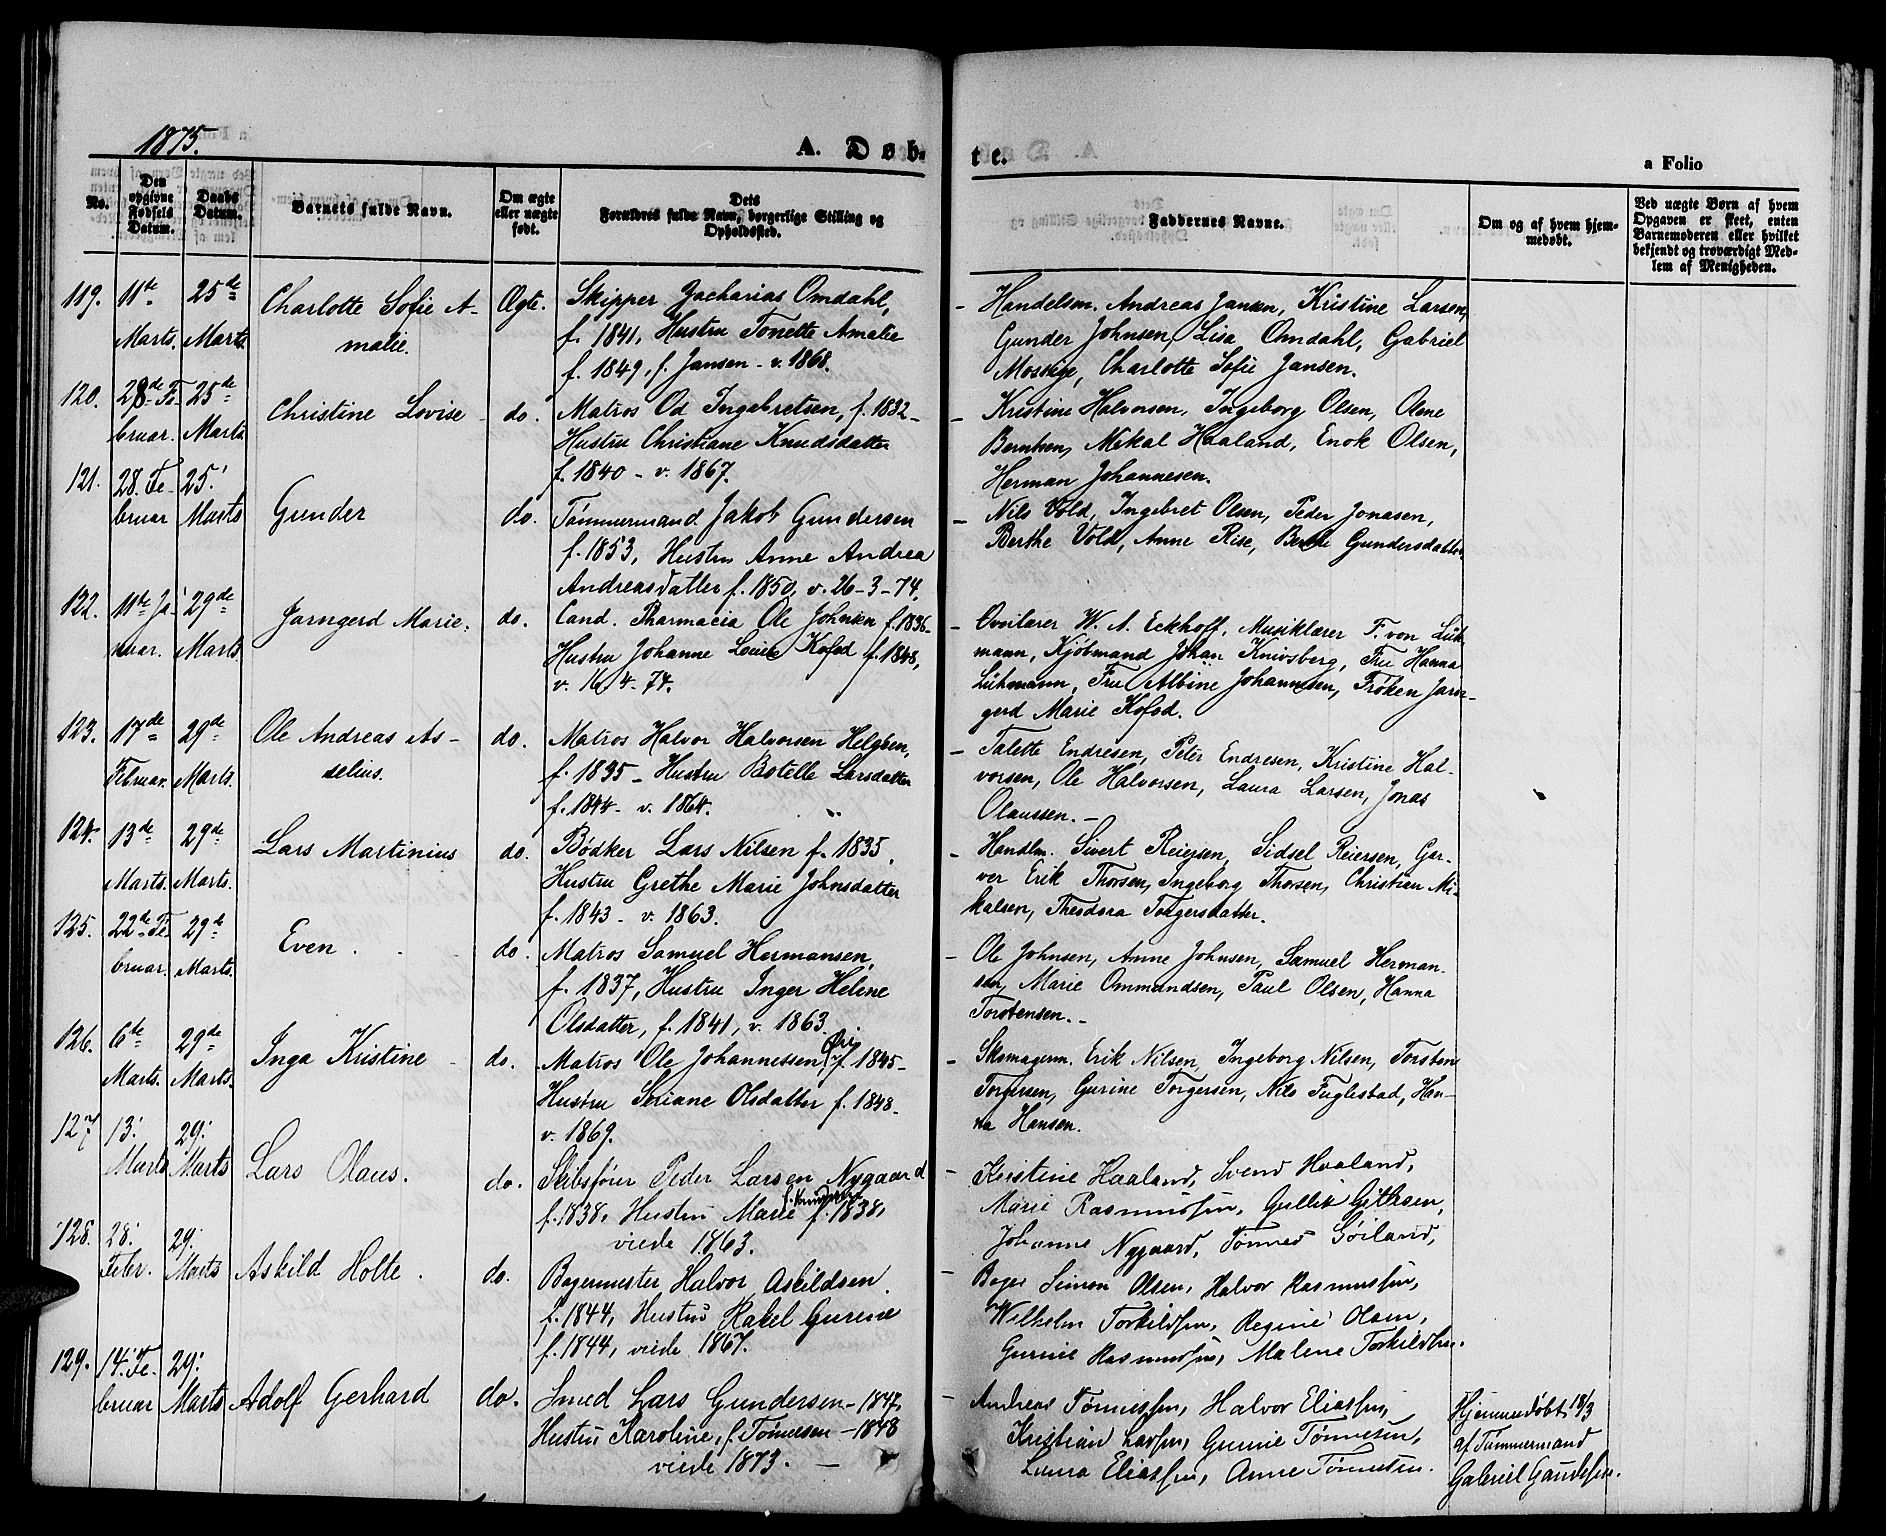 1875.
A. Døb-
te.
a Folio
No.
Den opgivne Fødsels Datum.
Daabs Datum.
Barnets fulde Navn.
Om ægte eller uægte født.
Dets Forældres fulde Navn, borgerlige Stilling og Opholdssted.
Faddernes Navne.
Om og af hvem hjemmedøbt.
Ved uægte Børn af hvem Opgaven er skeet, enten Barnemoderen eller hvilket bekjendt og troværdigt Medlem af Menigheden.
119. 11te Marts. 25de Marts.
Charlotte Sofie A-
malie.
Ægte.
Skipper Zacharias Omdahl,
f. 1841, Hustru Tonette Amalie
f. 1849, f. Jansen - v. 1868.
- Handelsm. Andreas Jansen, Kristine Larsen,
Gunder Johnsen, Lisa Omdahl, Gabriel
Moseige, Charlotte Sofie Jansen.
120. 28de Februar. 25de Marts
Christine Lovise - do.
Matros Od Ingebretsen, f. 1832 -
Hustru Christiane Knudsdatter
f. 1840 - v. 1867.
- Kristine Halvorsen, Ingeborg Olsen, Olene
Berntsen, Mikal Haaland, Enok Olsen,
Herman Johannesen.
121. 28. Februar 25. Marts
Gunder do.
Tømmermand Jakob Gundersen
f. 1853, Hustru Anne Andrea
Andreasdatter f. 1850, v. 26-3-74.
- Nils Vold, Ingebret Olsen, Peder Jonasen,
Berthe Vold, Anne Rise, Berthe Gundersdatter.
122. 11te Januar. 29de Marts.
Jarngerd Marie. do.
Cand. Pharmacia Ole Johnsen f. 1836-
Hustru Johanne Louise Kofod f. 1848,
v. 16/4-74.
- Overlærer W. A. Eckhoff, Musiklærer F. von Lüh-
mann, Kjøbmand Johan Knivsberg, Fru Hanna
Lühmann, Fru Albine Johannesen, Frøken Jarn-
gerd Marie Kofod.
123. 17de Februar. 29de Marts.
Ole Andreas As-
selius.
do.
Matros Halvor Halvorsen Helgøen,
f. 1835 - Hustru Botelle Larsdatter
f. 1844 - v. 1864.
- Talette Endresen, Peter Endresen, Kristine Hal-
vorsen, Ole Halvorsen, Laura Larsen, Jonas
Olaussen. -
124. 13de Marts. 29de Marts.
Lars Martinius do.
Bødker Lars Nilsen f. 1835,
Hustru Grethe Marie Johnsdatter
f. 1843 - v. 1863.
- Handlm. Sivert Reiersen, Sidsel Reiersen, Gar-
ver Erik Thorsen, Ingeborg Thorsen, Christian Mi-
kalsen, Theodora Torgersdatter.
125. 22de Februar. 29de Marts.
Even. do.
Matros Samuel Hermansen,
f. 1837, Hustru Inger Helene
Olsdatter, f. 1841, v. 1863.
- Ole Johnsen, Anne Johnsen, Samuel Herman-
sen, Marie Ommundsen, Paul Olsen, Hanna
Torstensen. -
126. 6te Marts. 29de Marts.
Inga Kristine - do.
Matros Ole Johannessen, f. 1845 -
Hustru Seriane Olsdatter f. 1848 -
v. 1869.
- Skomagerm. Erik Nilsen, Ingeborg Nilsen, Torsten
Torgersen, Gurine Torgersen, Nils Fuglestad, Han-
na Hansen.
127 13. Marts 29. Marts
Lars Olaus. do.
Skibsfører Peder Larsen Nygaard
f. 1838, Hustru Marie f. Knudsen f. 1838,
viede 1863.
- Kristine Haaland, Svend Haaland,
Marie Rasmussen, Gullik Gitlesen,
Johanne Nygaard, Tønnes Goiland,
128. 28. Febr. 29. Marts
Askild Holte. do.
Bagermester Halvor Askildsen.
f. 1844, Hustru Rakel Gurine
f. 1844, viede 1867.
- Bager Simon Olsen, Halvor Rasmussen,
Wilhelm Torkildsen, Regine Olsen,
Gurine Rasmussen, Malene Torkildsen.
129. 14. Februar 29. Marts
Adolf Gerhard do.
Smed Lars Gundersen - 1847,
Hustru Karoline, f. Tønnesen - 1848
viede 1873. -
- Andreas Tønnessen, Halvor Eliassen,
Kristian Larsen, Gurine Tønnesen,
Laura Eliassen, Anne Tønnesen.
Hjemmedøbt 18/3
af Tømmermand
Gabriel Gaudesen.